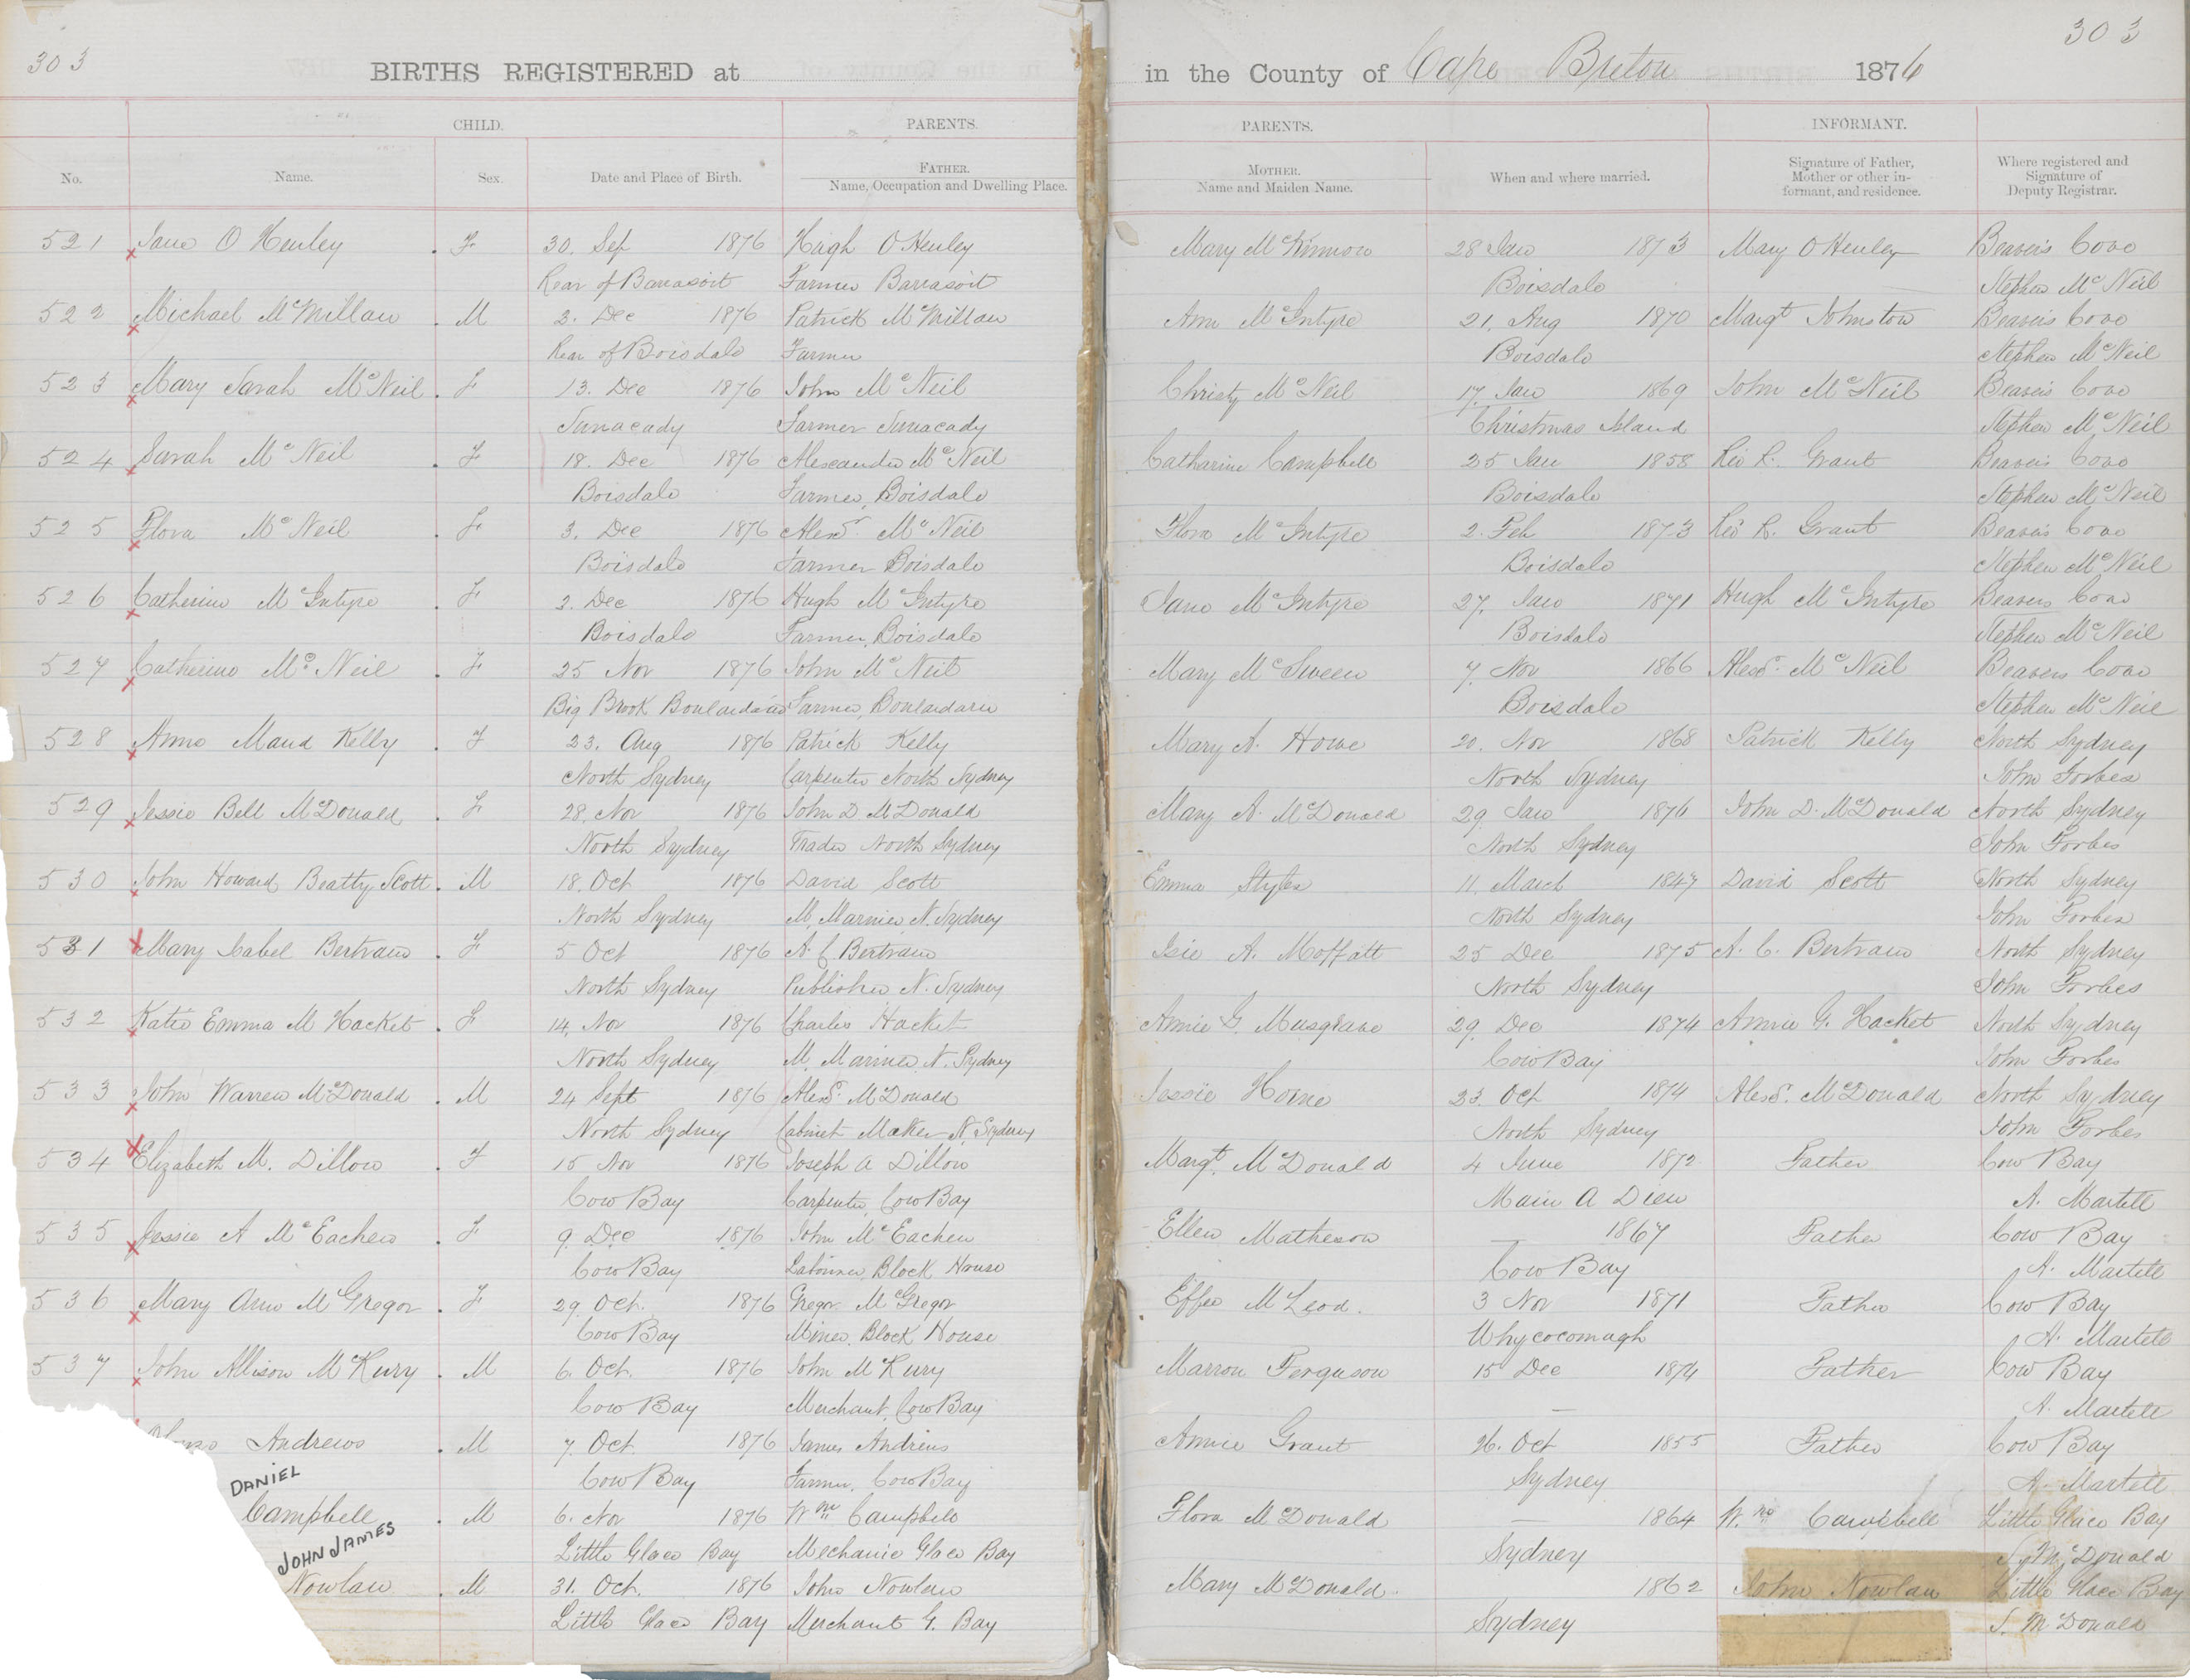 303
303
BIRTHS REGISTERED at
in the County of Cape Breton 1876
CHILD.
PARENTS.
PARENTS.
INFORMANT.
No.
Name.
Sex.
Date and Place of Birth.
FATHER.
Name, Occupation and Dwelling Place.
MOTHER.
Name and Maiden Name.
When and where married.
Signature of Father, Mother or other informant, and residence.
Where registered and Signature of Deputy Registrar.
521 Jane O Henley F 30. Sep 1876 Hugh O Henley Mary McKinnon 28 Jan 1873 Mary O Henley Beavers Cove
Rear of Barrasoit Farmer Barrasoit Boisdale Stephen McNeil
522 Michael McMillan M 2. Dec 1876 Patrick McMillan Ann McIntyre 21. Aug 1870 Margt Johnston Beavers Cove
Rear of Boisdale Farmer Boisdale Stephen McNeil
523 Mary Sarah McNeil F 13. Dec 1876 John McNeil Christy McNeil 17. Jan 1869 John McNeil Beavers Cove
Junacady Farmer Junacady Christmas Island Stephen McNeil
524 Sarah McNeil F 18. Dec 1876 Alexander McNeil Catharine Campbell 25 Jan 1858 Rev R. Grant Beavers Cove
Boisdale Farmer, Boisdale Boisdale Stephen McNeil
525 Flora McNeil F 3. Dec 1876 Alexdr McNeil Flora McIntyre 2. Feb 1873 Rev R. Grant Beavers Cove
Boisdale Farmer Boisdale Boisdale Stephen McNeil
526 Catherine McIntyre F 2. Dec 1876 Hugh McIntyre Jane McIntyre 27. Jan 1871 Hugh McIntyre Beavers Cove
Boisdale Farmer, Boisdale Boisdale Stephen McNeil
527 Catherine McNeil F 25 Nov 1876 John McNeil Mary McSween 7. Nov 1866 Alexdr McNeil Beavers Cove
Big Brook Boulardarie Farmer, Boulardarie Boisdale Stephen McNeil
528 Anne Maud Kelly F 23. Aug 1876 Patrick Kelly Mary A. Howe 20. Nov 1868 Patrick Kelly North Sydney
North Sydney Carpenter North Sydney North Sydney John Forbes
529 Jessie Bell McDonald F 28. Nov 1876 John D McDonald Mary A. McDonald 29. Jan 1876 John D. McDonald North Sydney
North Sydney Trader North Sydney North Sydney John Forbes
530 John Howard Beatty Scott M 18. Oct 1876 David Scott Emma Styles 11. March 1847 David Scott North Sydney
North Sydney M. Marnier, N. Sydney North Sydney John Forbes
531 Mary Isabel Bertram F 5 Oct 1876 A. C Bertram Isie A. Moffatt 25 Dec 1875 A. C. Bertram North Sydney
North Sydney Publisher N. Sydney North Sydney John Forbes
532 Katie Emma M Hacket F 14. Nov 1876 Charles Hacket Annie G. Musgrave 29. Dec 1874 Annie G. Hacket North Sydney
North Sydney M. Mariner, N. Sydney Cow Bay John Forbes
533 John Warren McDonald M 24 Sept 1876 Alexdr McDonald Jessie Horne 23. Oct 1874 Alexdr McDonald North Sydney
North Sydney Cabinet Maker N. Sydney North Sydney John Forbes
534 Elizabeth M. Dillon F 15 Nov 1876 Joseph A Dillon Margt McDonald 4 June 1872 Father Cow Bay
Cow Bay Carpenter, Cow Bay Main A Dieu A. Martell
535 Jessie A McEachen F 9. Dec 1876 John McEachen Ellen Matheson — 1867 Father Cow Bay
Cow Bay Labourer, Block House Cow Bay A. Martell
536 Mary Ann McGregor F 29. Oct. 1876 Gregor McGregor Effie McLeod. 3 Nov 1871 Father Cow Bay
Cow Bay Miner, Block House Whycocomagh A. Martell
537 John Allison McKury M 6. Oct. 1876 John McKury Marron Ferguson 15 Dec 1874 Father Cow Bay
Cow Bay Merchant, Cow Bay — A. Martell
Andrews M 7. Oct 1876 James Andrews Annie Grant 26. Oct 1855 Father Cow Bay
Cow Bay Farmer, Cow Bay Sydney A. Martell
DANIEL
Campbell M 6. Nov 1876 Wm Campbell Flora McDonald — 1864 Wm Campbell Little Glace Bay
Little Glace Bay Mechanic Glace Bay Sydney McDonald
JOHN JAMES
Nowlan M 31. Oct. 1876 John Nowlan Mary McDonald. 1862 John Nowlan Little Glace Bay
Little Glace Bay Merchant G. Bay Sydney S. McDonald